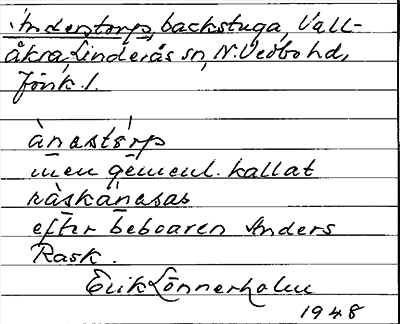 Anderstorp, backstuga, Vall-
åkra, Linderås sn, N. Vedbo hd,
Jönk. l.
ànastórp
men gemenl. kallat
ràskánasas
efter beboaren Anders
Rask.
Erik Lönnerholm
1948